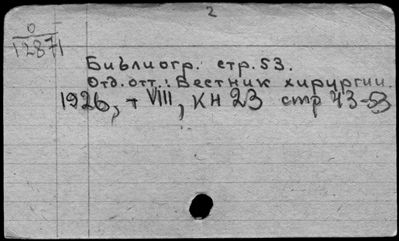 2
0
12871
Библиогр. стр.53.
Отд.отт.: Вестник хирургии.
1926, т VIII, КН 23 стр 43-53